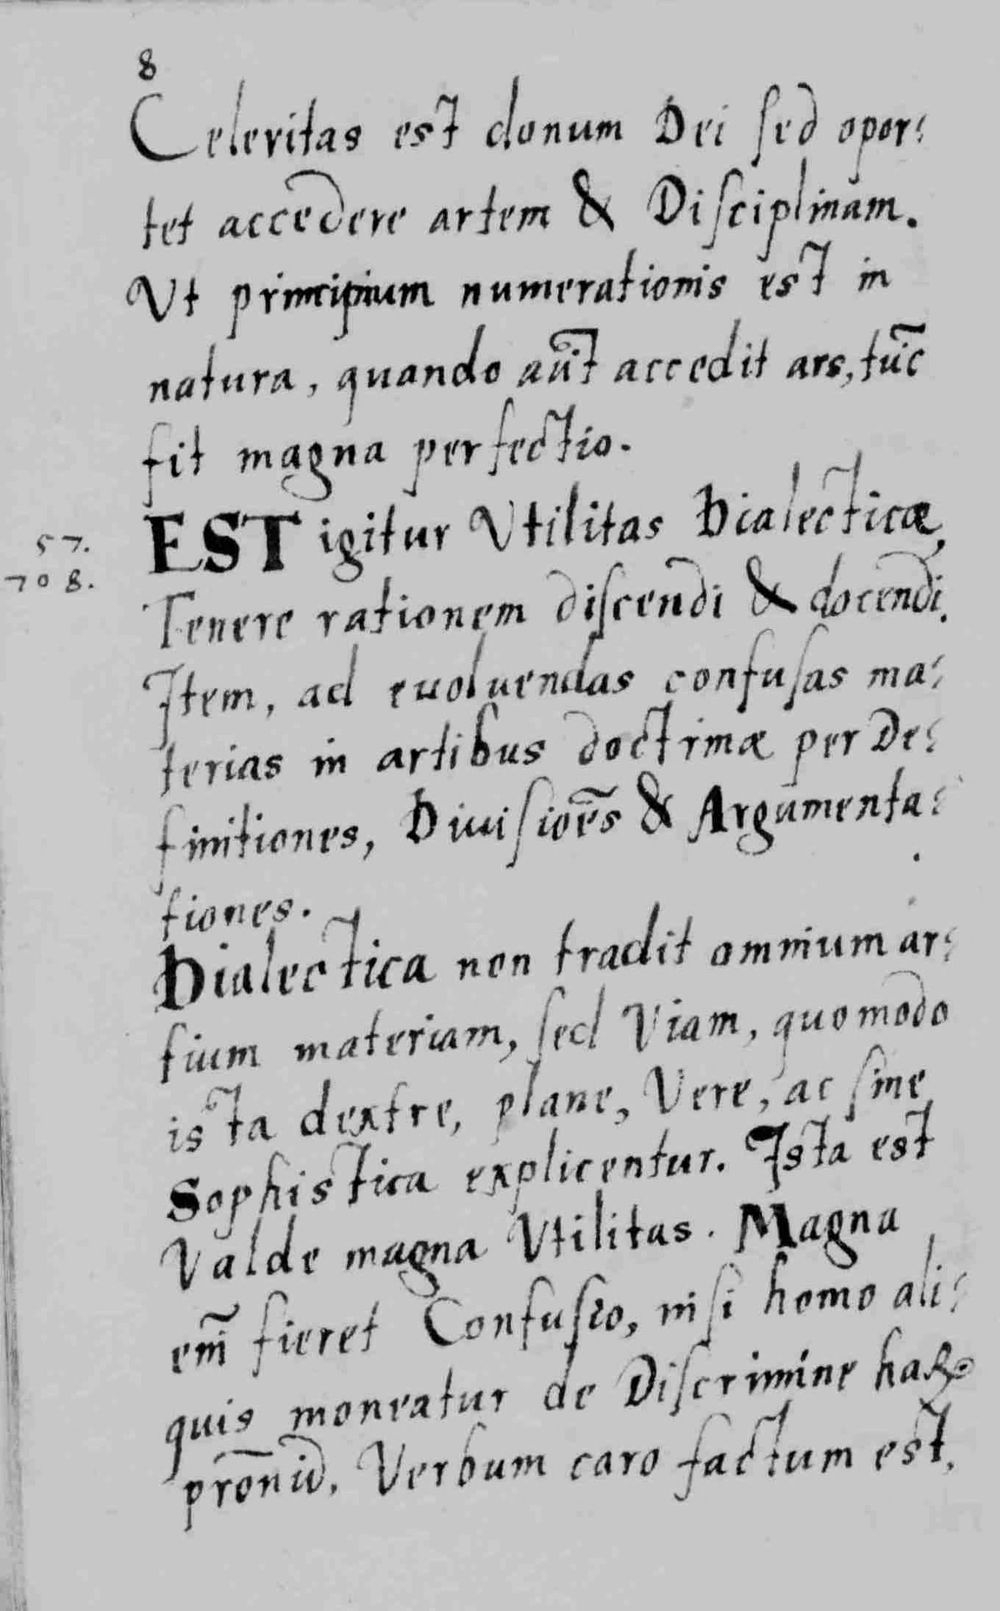 8
Celeritas est donum Dei sed opor:
tet accedere artem & Disciplinam.
Vt principium numerationis est in
natura, quando aut̃ accedit ars, tũc
fit magna perfectio.
EST igitur Vtilitas Dialecticæ,
57.
708.
Tenere rationem discendi & docendi.
Item, ad euoluendas confusas ma:
terias in artibus doctrinæ per De:
finitiones, Diuisiões & Argumenta:
tiones.
Dialectica non tradit omnium ar:
tium materiam, sed Viam, quomodo
ista dextre, plane, Vere, ac sine
Sophistica explicentur. Ista est
Valde magna Vtilitas. Magna
em̃ fieret Confusio, nisi homo ali:
quis moneatur de Discrimine haꝝ
Verbum caro factum est,